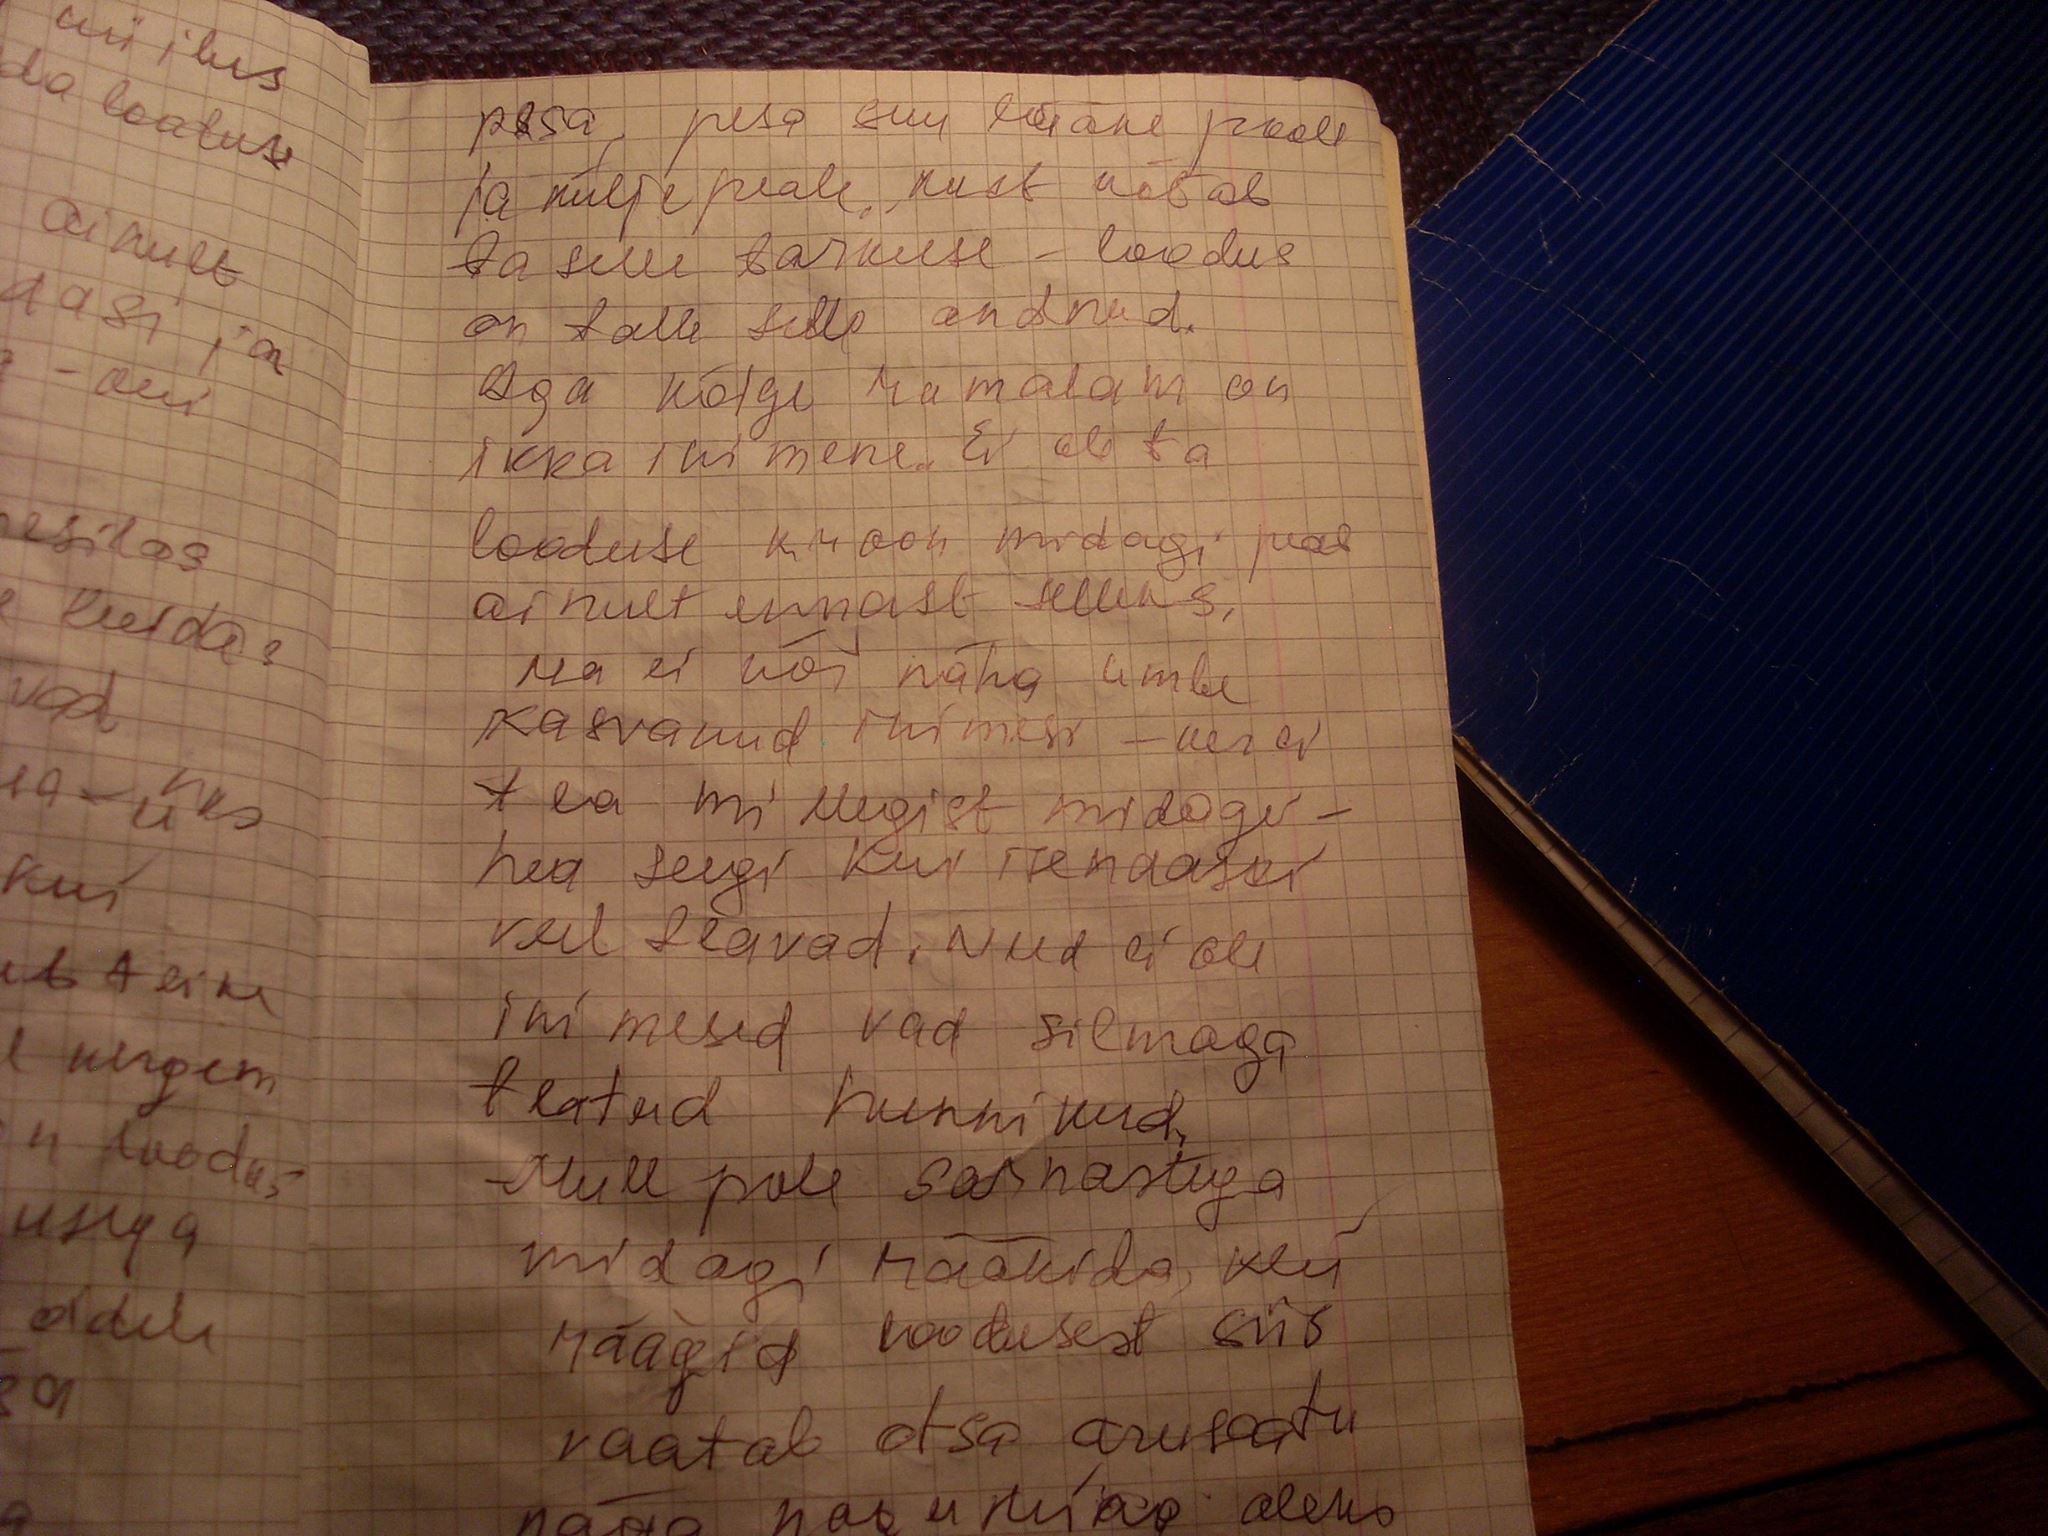 ilus
looduse
ainult
dasi ja
kuidas
vad
üks
kui
teine
kergem
loodus
pesa, pesa suu lääne poole
ja külje peale, kust võtab
ta selle tarkuse - loodus
on talle selle andnud.
Aga kõige rumalam on
ikka inimene. Ei ole ta
looduse kroon midagi peab
ainult ennast selleks,
Ma ei või näha umbe
kasvanud inimesi - kes ei
tea millegist midagi -
hea seegi kui iseendaski
veel teavad. Need ei ole
inimesed vad silmaga
teatud hunnikud,
Mull pole sarnastega
midagi rääkida, kui
räägid loodusest siis
vaatab otsa arusaatu
näga nagu oleks